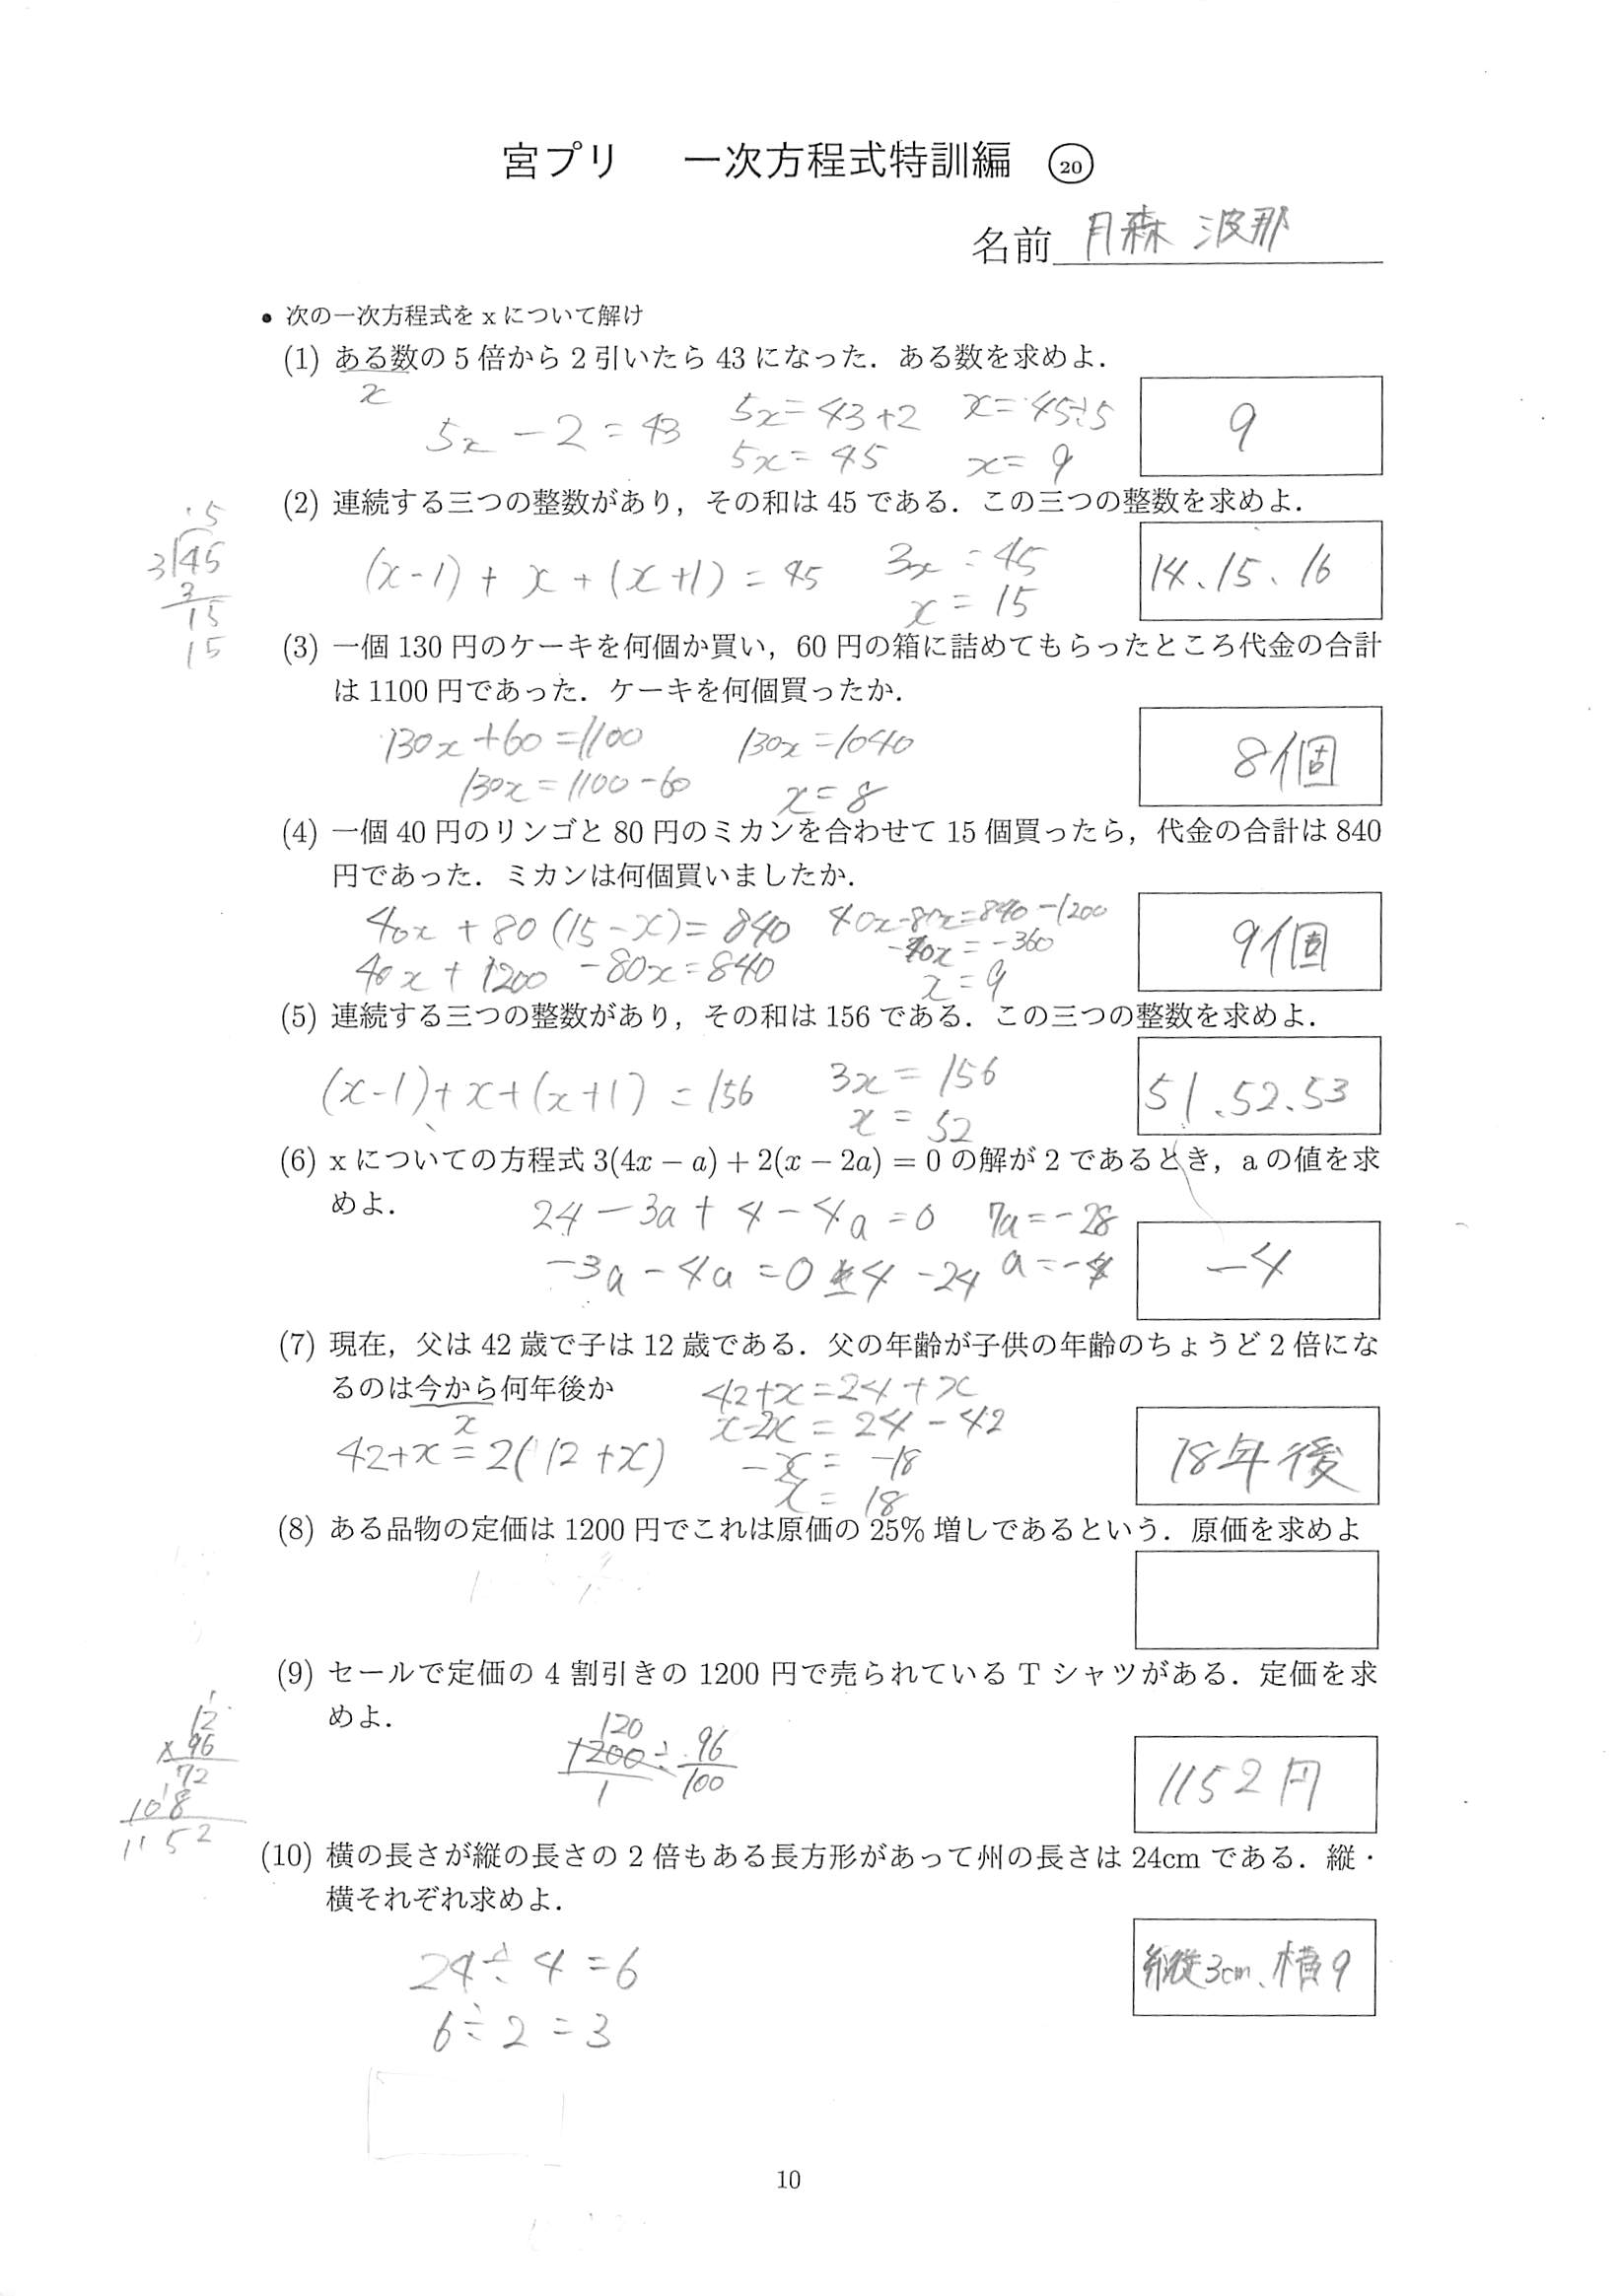 宮プリ 一次方程式特訓編 20
名前 月森 波那
• 次の一次方程式を x について解け
(1) ある数の 5 倍から 2 引いたら 43 になった．ある数を求めよ．
x
5x - 2 = 43
5x = 43 + 2
5x = 45
x = 45÷5
x = 9
9
(2) 連続する三つの整数があり，その和は 45 である．この三つの整数を求めよ．
15
3)45
3
15
15
(x-1) + x + (x+1) = 45
3x = 45
x = 15
14、15、16
(3) 一個 130 円のケーキを何個か買い，60 円の箱に詰めてもらったところ代金の合計
は 1100 円であった．ケーキを何個買ったか．
130x + 60 = 1100
130x = 1100 - 60
130x = 1040
x = 8
8個
(4) 一個 40 円のリンゴと 80 円のミカンを合わせて 15 個買ったら，代金の合計は 840
円であった．ミカンは何個買いましたか．
40x + 80(15 - x) = 840
40x + 1200 - 80x = 840
40x - 80x = 840 - 1200
-40x = -360
x = 9
9個
(5) 連続する三つの整数があり，その和は 156 である．この三つの整数を求めよ．
(x-1) + x + (x+1) = 156
3x = 156
x = 52
51、52、53
(6) x についての方程式 3(4x − a) + 2(x − 2a) = 0 の解が 2 であるとき，a の値を求
めよ．
24 - 3a + 4 - 4a = 0
-3a - 4a = 0 ±4 - 24
7a = -28
a = -4
-4
(7) 現在，父は 42 歳で子は 12 歳である．父の年齢が子供の年齢のちょうど 2 倍にな
るのは今から何年後か
x
42+x = 2(12+x)
42+x = 24+x
x-2x = 24-42
-x = -18
x = 18
18年後
(8) ある品物の定価は 1200 円でこれは原価の 25% 増しであるという．原価を求めよ
(9) セールで定価の 4 割引きの 1200 円で売られている T シャツがある．定価を求
めよ．
12
×96
72
108
1152
120
1200/1 ÷ 96/100
1152円
(10) 横の長さが縦の長さの 2 倍もある長方形があって州の長さは 24cm である．縦・
横それぞれ求めよ．
24÷4=6
6÷2=3
縦3cm、横9
10